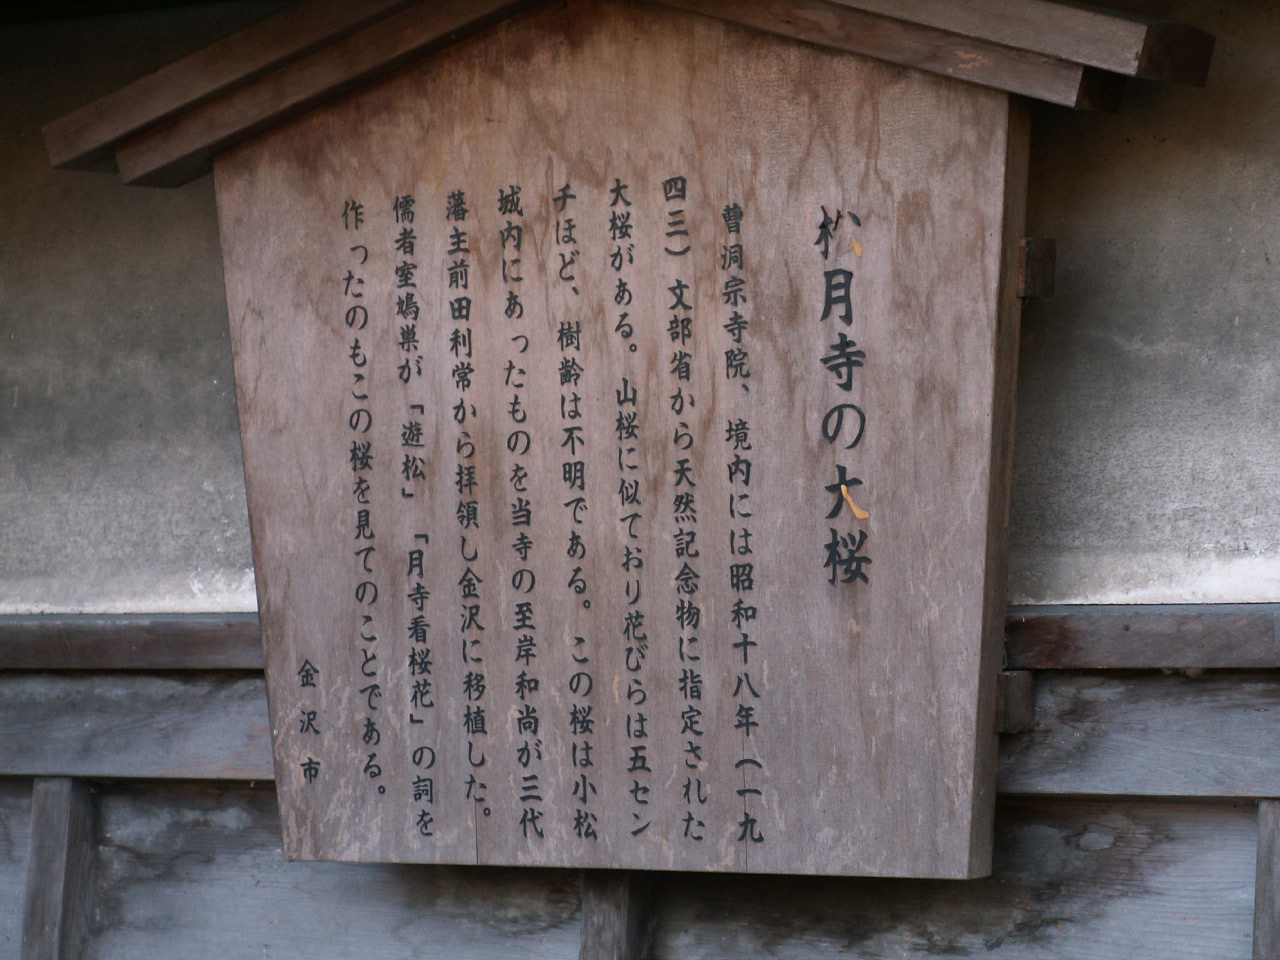 松月寺の大桜
曹洞宗寺院、境内には昭和十八年（一九
四三）文部省から天然記念物に指定された
大桜がある。山桜に似ており花びらは五セン
チほど、樹齢は不明である。この桜は小松
城内にあったものを当寺の至岸和尚が三代
藩主前田利常から拝領し金沢に移植した。
儒者室鳩巣が「遊松」「月寺看桜花」の詞を
作ったのもこの桜を見てのことである。
金沢市